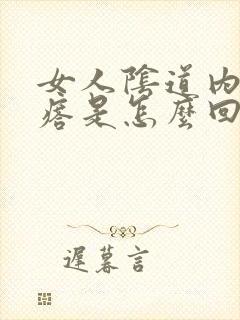 女人陰道內
痞是怎麼回
遲暮言